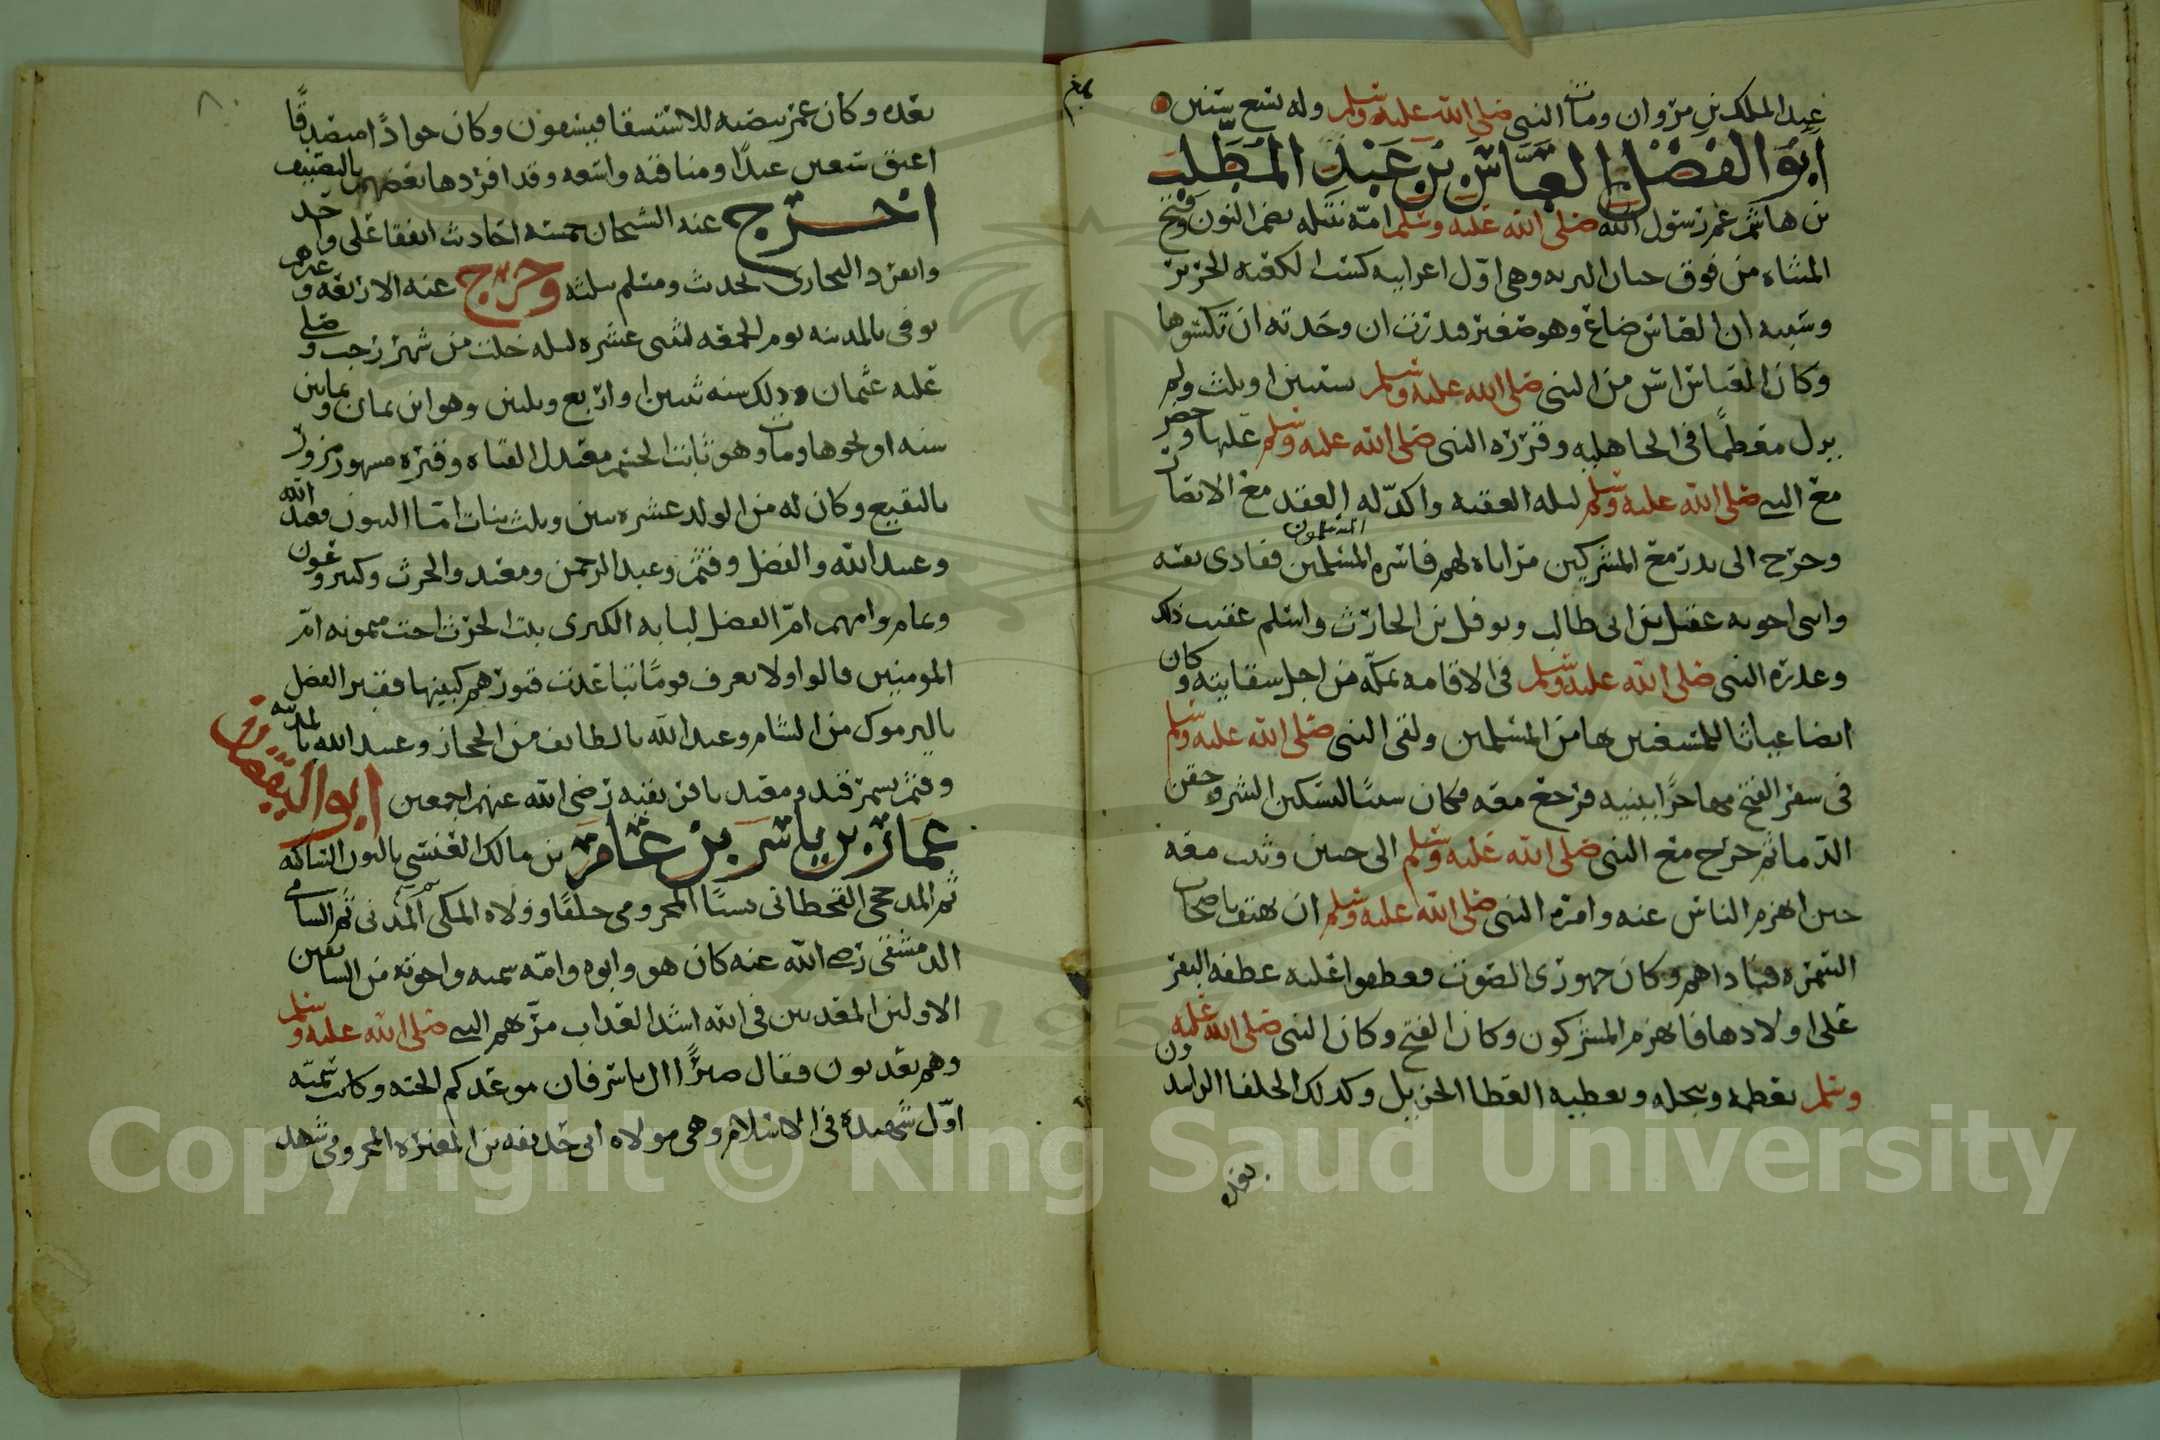 عبد الملك بن مروان ومات النبي صلى الله عليه وسلم وله تسع سنين
ابو الفضل العباس بن عبد المطلب
بن هاشم عم رسول الله صلى الله عليه وسلم امه نتيله بضم النون وفتح
المثناه من فوق وهى اول اعرابيه كست الكعبه الحرير
وسببه ان العباس ضاع وهو صغير فنذرت ان وجدته ان تكسوها
وكان العباس اسن من النبى صلى الله عليه وسلم بسنتين او ثلث ولم
يزل معظما فى الجاهليه وقرره النبى صلى الله عليه وسلم عليها وحضر
مع النبى صلى الله عليه وسلم ليله العقبه واكد له العقد مع الانصار
وخرج الى بدر مع المشركين مراياه لهم فاسره المسلمين ففادى نفسه
المسلمون
وابنى اخويه عقيل بن ابى طالب ونوفل بن الحارث واسلم عقيب ذلك
وعذره النبى صلى الله عليه وسلم فى الاقامه بمكه من اجل سقايته وكان
ايضا عياثا للمستضعفين بها من المسلمين ولقى النبى صلى الله عليه وسلم
فى سفر الفتح مهاجرا ببنيه فرجع معه وكان سببا لتسكين الشر وحقن
الدما ثم خرج مع النبى صلى الله عليه وسلم الى حنين وثبت معه
حين انهزم الناس عنه وامره النبى صلى الله عليه وسلم ان يهتف باصحاب
السمره فناداهم وكان جهورى الصوت فعطفوا عليه عطفه البقر
على اولادها فانهزم المشركون وكان الفتح وكان النبى صلى الله عليه
وسلم يعظمه ويبجله ويعطيه العطا الجزيل وكذلك الخلفا الراشدون
بعده
بعده وكان عمر ينصبه للاستسقا فيسقون وكان جوادا متصدقا
اعتق سبعين عبدا ومناقبه واسعه وقد افردها بعضهم بالتصنيف
اخرج عنه الشيخان خمسه احاديث اتفقا على واحد
وانفرد البخارى بحديث ومسلم بثلثه وخرج عنه الاربعه وغيرهم
توفى بالمدينه يوم الجمعه لثنتى عشره ليله خلت من شهر رجب وصلى
عليه عثمان وذلك سنه ثنتين او اربع وثلثين وهو ابن ثمان وثمانين
سنه او نحوها ومات وهو ثابت الجسم معتدل القناه وقبره مشهور مزور
بالبقيع وكان له من الولد عشره بنين وثلث بنات اما البنون فعبد الله
وعبيد الله والفضل وقثم وعبد الرحمن ومعبد والحرث وكثير وعون
وتمام وامهم ام الفضل لبابه الكبرى بنت الحرث اخت ميمونه ام
المومنين قالوا ولا يعرف قوما تباعدت قبورهم كبنيها فقبر الفضل
باليرموك من الشام وعبد الله بالطائف من الحجاز وعبيد الله بالمدينه
وقثم بسمرقند ومعبد بافريقيه رضى الله عنهم اجمعين ابو اليقظان
عمار بن ياسر بن عامر بن مالك العنسي بالنون الساكنه
ثم المذحجى القحطانى نسبا المخزومى حلفا وولاه المكى ثم المدنى ثم الشامى
الدمشقى رضى الله عنه كان هو وابوه وامه سميه واخوته من السابقين
الاولين المعذبين فى الله اشد العذاب مر بهم النبى صلى الله عليه وسلم
وهم يعذبون فقال صبرا ال ياسر فان موعدكم الجنه وكانت سميه
اول شهيدة فى الاسلام وهى مولاه ابى حذيفه بن المغيره المخزومى شهد
Copyright © King Saud University